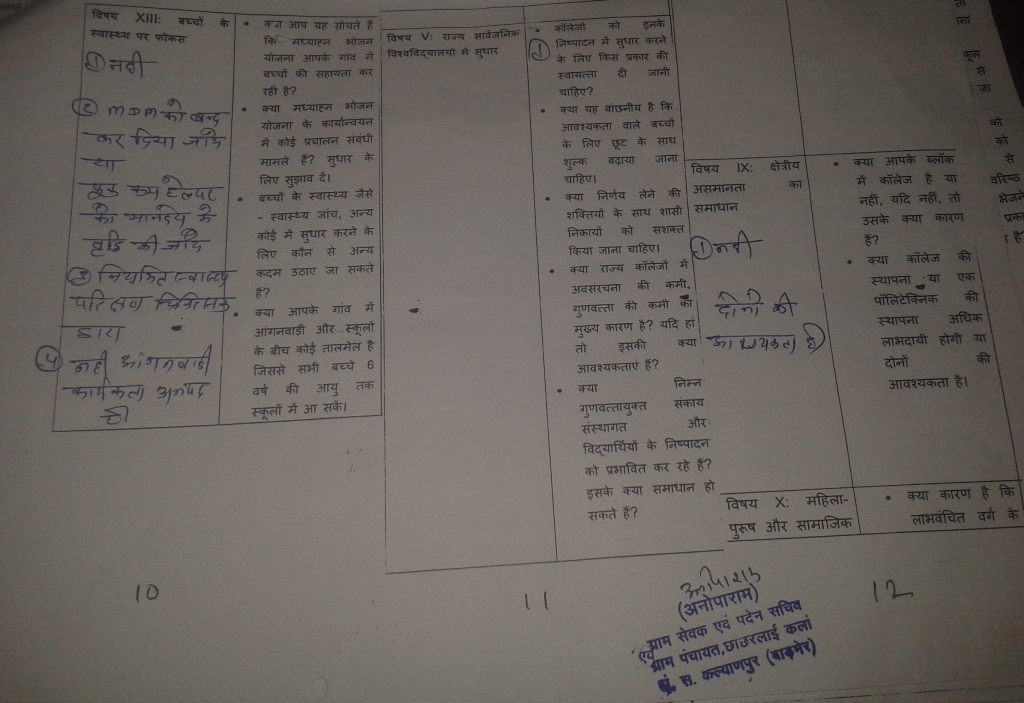 विषय XIII: बच्चों के
स्वास्थ्य पर फोकस
① नही
② MDM को बन्द
कर दिया जाये
या
कुक कम हेल्पर
को मानदेय मे
वृद्धि की जाये
③ नियमित स्वास्थ्य
परिक्षण चिकित्सक
द्वारा
④ नही आंगनवाडी
कार्यकर्ता अनपढ
है
• क्या आप यह सोचते हैं
कि मध्याहन भोजन
योजना आपके गांव में
बच्चों की सहायता कर
रही है?
• क्या मध्याहन भोजन
योजना के कार्यान्वयन
में कोई प्रचालन संबंधी
मामले हैं? सुधार के
लिए सुझाव दें।
• बच्चों के स्वास्थ्य जैसे
- स्वास्थ्य जांच, अन्य
कोई में सुधार करने के
लिए कौन से अन्य
कदम उठाए जा सकते
हैं?
• क्या आपके गांव में
आंगनवाड़ी और स्कूलों
के बीच कोई तालमेल है
जिससे सभी बच्चे 6
वर्ष की आयु तक
स्कूलों में आ सकें।
10
विषय V: राज्य सार्वजनिक
विश्वविद्यालयों में सुधार
• कॉलेजों को इनके
① निष्पादन में सुधार करने
के लिए किस प्रकार की
स्वायत्ता दी जानी
चाहिए?
• क्या यह वांछनीय है कि
आवश्यकता वाले बच्चों
के लिए छूट के साथ
शुल्क बढ़ाया जाना
चाहिए।
• क्या निर्णय लेने की
शक्तियों के साथ शासी
निकायों को सशक्त
किया जाना चाहिए।
• क्या राज्य कॉलेजों में
अवसंरचना की कमी,
गुणवत्ता की कमी का
मुख्य कारण है? यदि हां
तो इसकी क्या
आवश्यकताएं हैं?
• क्या निम्न
गुणवत्तायुक्त संकाय
संस्थागत और
विद्यार्थियों के निष्पादन
को प्रभावित कर रहे हैं?
इसके क्या समाधान हो
सकते हैं?
11
विषय IX: क्षेत्रीय
असमानता का
समाधान
① नही
दोनो की
आवश्यकता है
• क्या आपके ब्लॉक
में कॉलेज है या
नहीं, यदि नहीं, तो
उसके क्या कारण
हैं?
• क्या कॉलेज की
स्थापना या एक
पॉलिटेक्निक की
स्थापना अधिक
लाभदायी होगी या
दोनों की
आवश्यकता है।
विषय X: महिला-
पुरूष और सामाजिक
• क्या कारण है कि
लाभवंचित वर्ग के
12
(अनोपाराम)
ग्राम सेवक एवं पदेन सचिव
ग्राम पंचायत,छाछरलाई कलां
पं. स. कल्याणपुर (बाड़मेर)
कूल
से
जा
को
को
से
वरिष्ठ